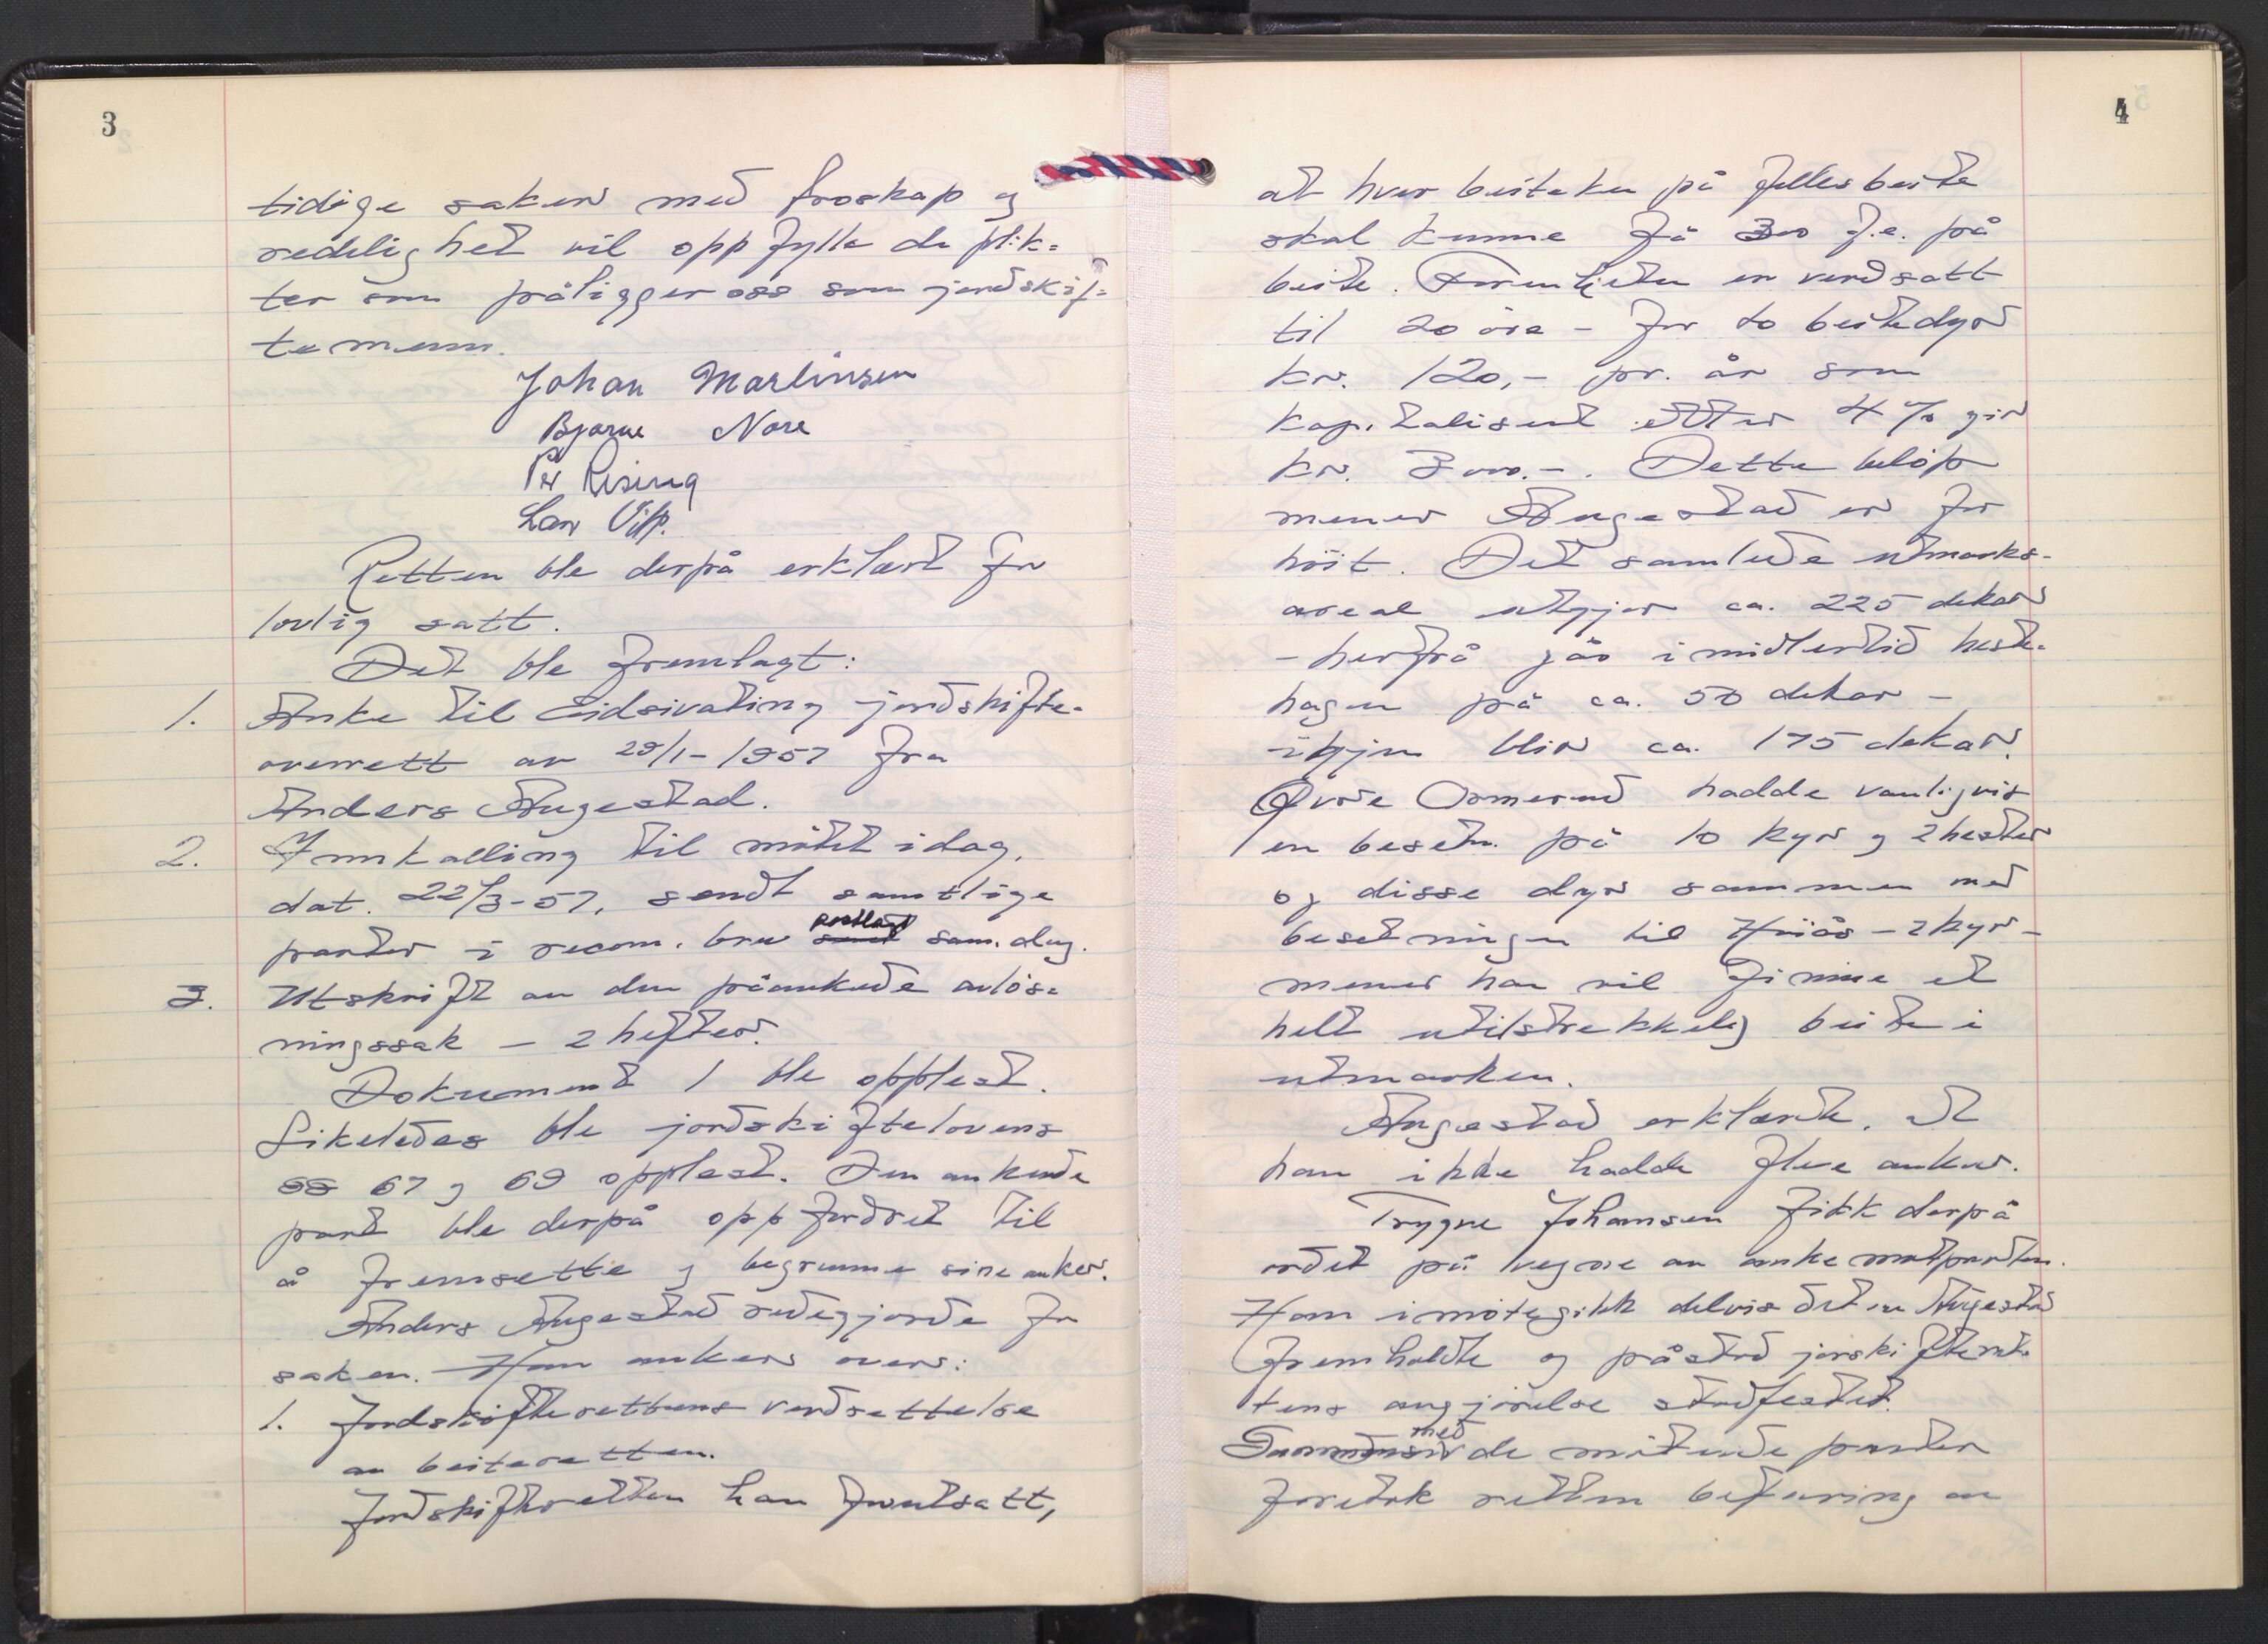 3
tidige saker med troskap og
redelighet vil oppfylle de plik=
ter som påligger oss som jordskif=
temenn.
Johan Martinsen
Bjarne Nore
Per Rising
Lars
Retten ble derpå erklært for
lovlig satt.
Det ble fremlagt:
1. Anke til Eidsivating jordskifte=
overrett av 29/1-1957 fra
Anders Augestad.
2. Innkalling til møtet idag,
dat. 22/3-57, sendt samtlige
parter i recom. brev postlagt sam. dag.
3. Utskrift av den påankede avløs=
ningssak - 2 hefter.
Dokument 1 ble opplest.
Likeledes ble jordskiftelovens
§§ 67 og 69 opplest. Den ankende
part ble derpå oppfordret til
å fremsette og begrunne sine anker.
Anders Augestad redegjorde for
saken. Han anker over:
1. Jordskifterettens verdsettelse
av beiteretten.
Jordskifteretten har forutsatt,
4
at hver beiteku på fellesbeite
skal kunne få 300 f.e. på
beite. Forenheten er verdsatt
til 20 øre - for to beitedyr
kr. 120,- pr. år som
kapitalisert etter 4 % gir
kr. 3000.-. Dette beløp
mener Augestad er for
høit. Det samlede utmarks-
areal utgjør ca. 225 dekar
- herfra går imidlertid heste-
hagen på ca. 50 dekar -
igjen blir ca. 175 dekar.
Øvre Ormerud hadde vanligvis
en besetn. på 10 kyr og 2 hester
og disse dyr sammen med
besetningen til - 2 kyr -
mener han vil finne et
helt utilstrekkelig beite i
utmarken.
Augestad erklærte, at
han ikke hadde flere anker.
Trygve Johansen fikk derpå
ordet på vegne av ankemotparten.
Han imøtegikk delvis det av Augestad
fremholdte og påstod jorskifteret-
tens avgjørelse stadfestet.
Sammen med de møtende parter
foretok retten befaring av